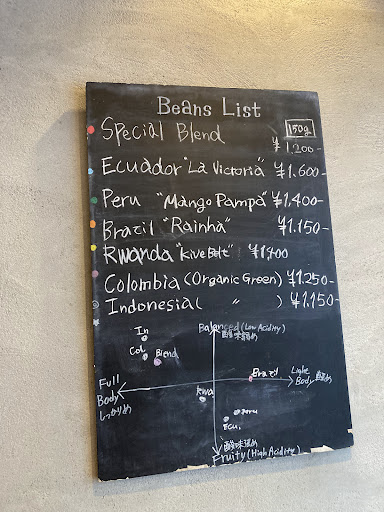 Beans List
Special Blend 150g ¥1,200-
Ecuador "La Victoria" ¥1,600-
Peru "Mango Pampa" ¥1,400-
Brazil "Rainha" ¥1,150-
Rwanda "Kive Belt"
Colombia (Organic Green) ¥1,250-
Indonesia ( " ) ¥1,150-
Balanced (Low Acidity)
In
Col
Blend
Brazil
Light
Body
Full
Body
しっかりめ
Rwa
Peru
Ecu.
酸味強め
Fruity (High Acidity)